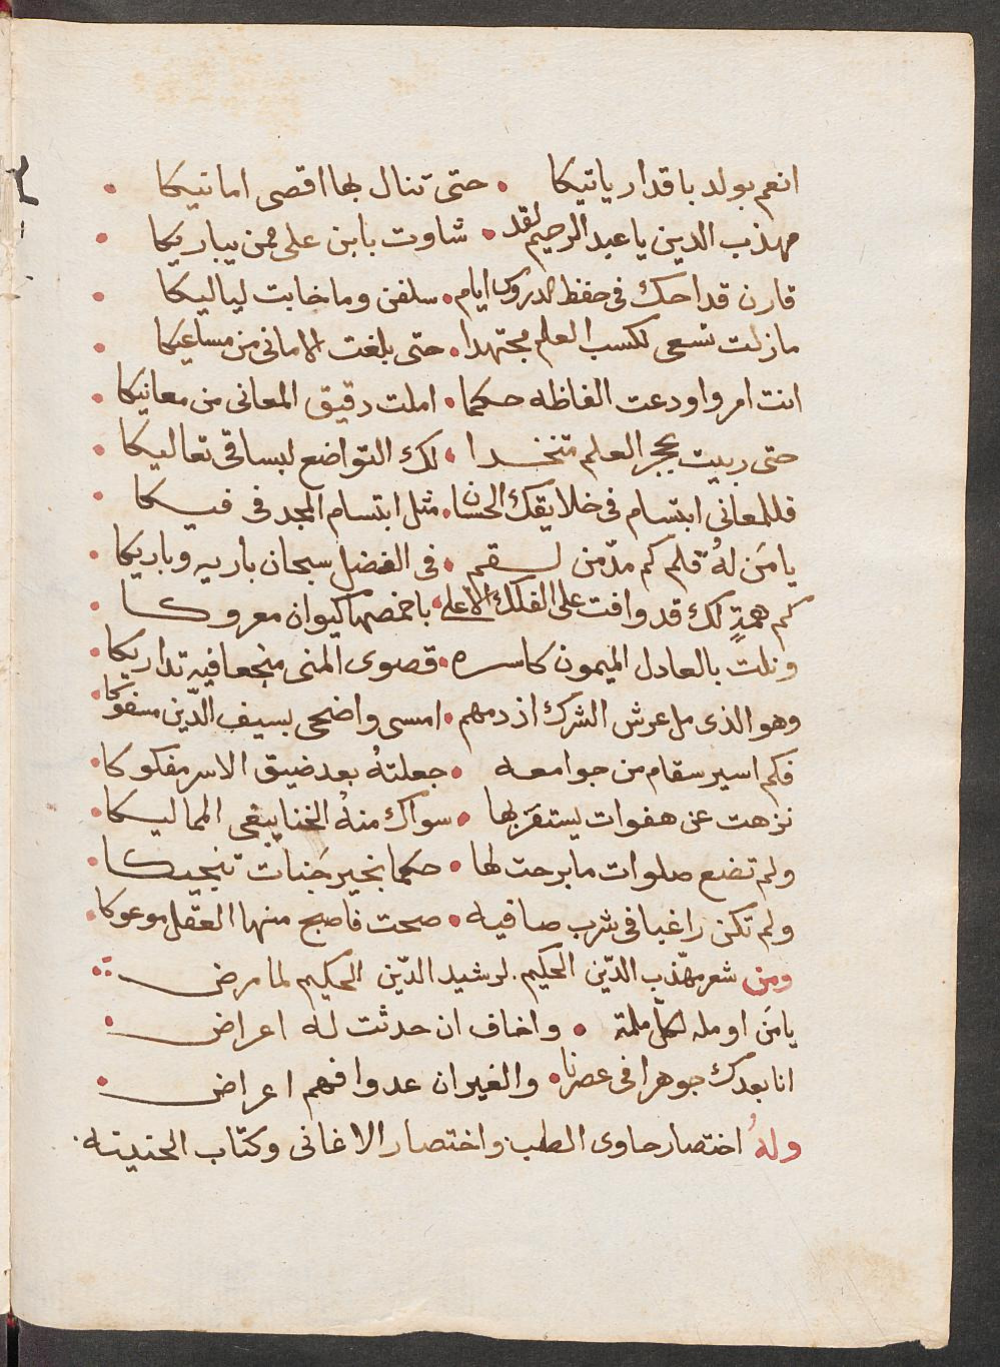 انعم بولد باقدار ياتيكا • حتى تنال بها اقصى امانيكا •
مهذب الدين يا عبد الرحيم لقد • شاوت بابن على ممن يباريكا •
قارن قداحك فى حفظ الدروس ايام • سلفن وما خابت لياليكا •
مازلت تسعى لكسب العلم مجتهدا • حتى بلغت الامانى من مساعيكا •
انت امروا ودعت الفاظه حكما • املت دقيق المعانى من معانيكا •
حتى ربيت بحجر العلم متخدا • لك التواضع لبسا فى تعاليكا •
فللمعانى ابتسام فى خلايقك الحسان • مثل ابتسام المجد فى فيكا •
يا مَن لهُ قلم كم مدّ من لسقم • فى الفضل سبحان باريه وباريكا •
كم همةٍ لك قد وافت على الفلك الاعلى • باخمصها كيوان معروكا •
ونلت بالعادل الميمون كاسره • قصوى المنى منجعا فيه تداريكا •
وهو الذى مل عرش الشرك اذ دمهم • امسى واضحى بسيف الدّين مسفوكا •
فكم اسير سقام من جوامعه • جعلتهُ بعد ضيق الاسر مفكوكا •
نزهت عن هفوات يستقر بها • سواك منهُ الخنا يبغى المماليكا •
ولم تضع صلوات ما برحت لها • حكما بخير جَنبات تنجيكا •
ولم تكن راغبا فى شرب صافيه • صحت فاصبح منها العقل موعوكا •
ومن شعر مهّذب الدّين الحكيم لرشيد الدّين الحكيم لما مرض
يا مَن اومله لكلّ ملمة • واخاف ان حدثت له اعراض •
انا بعدك جوهرا فى عصرنا • والغير ان عدوا فهم اعراض •
ولهُ اختصار حاوى الطب واختصار الاغانى وكتاب الحنينه •